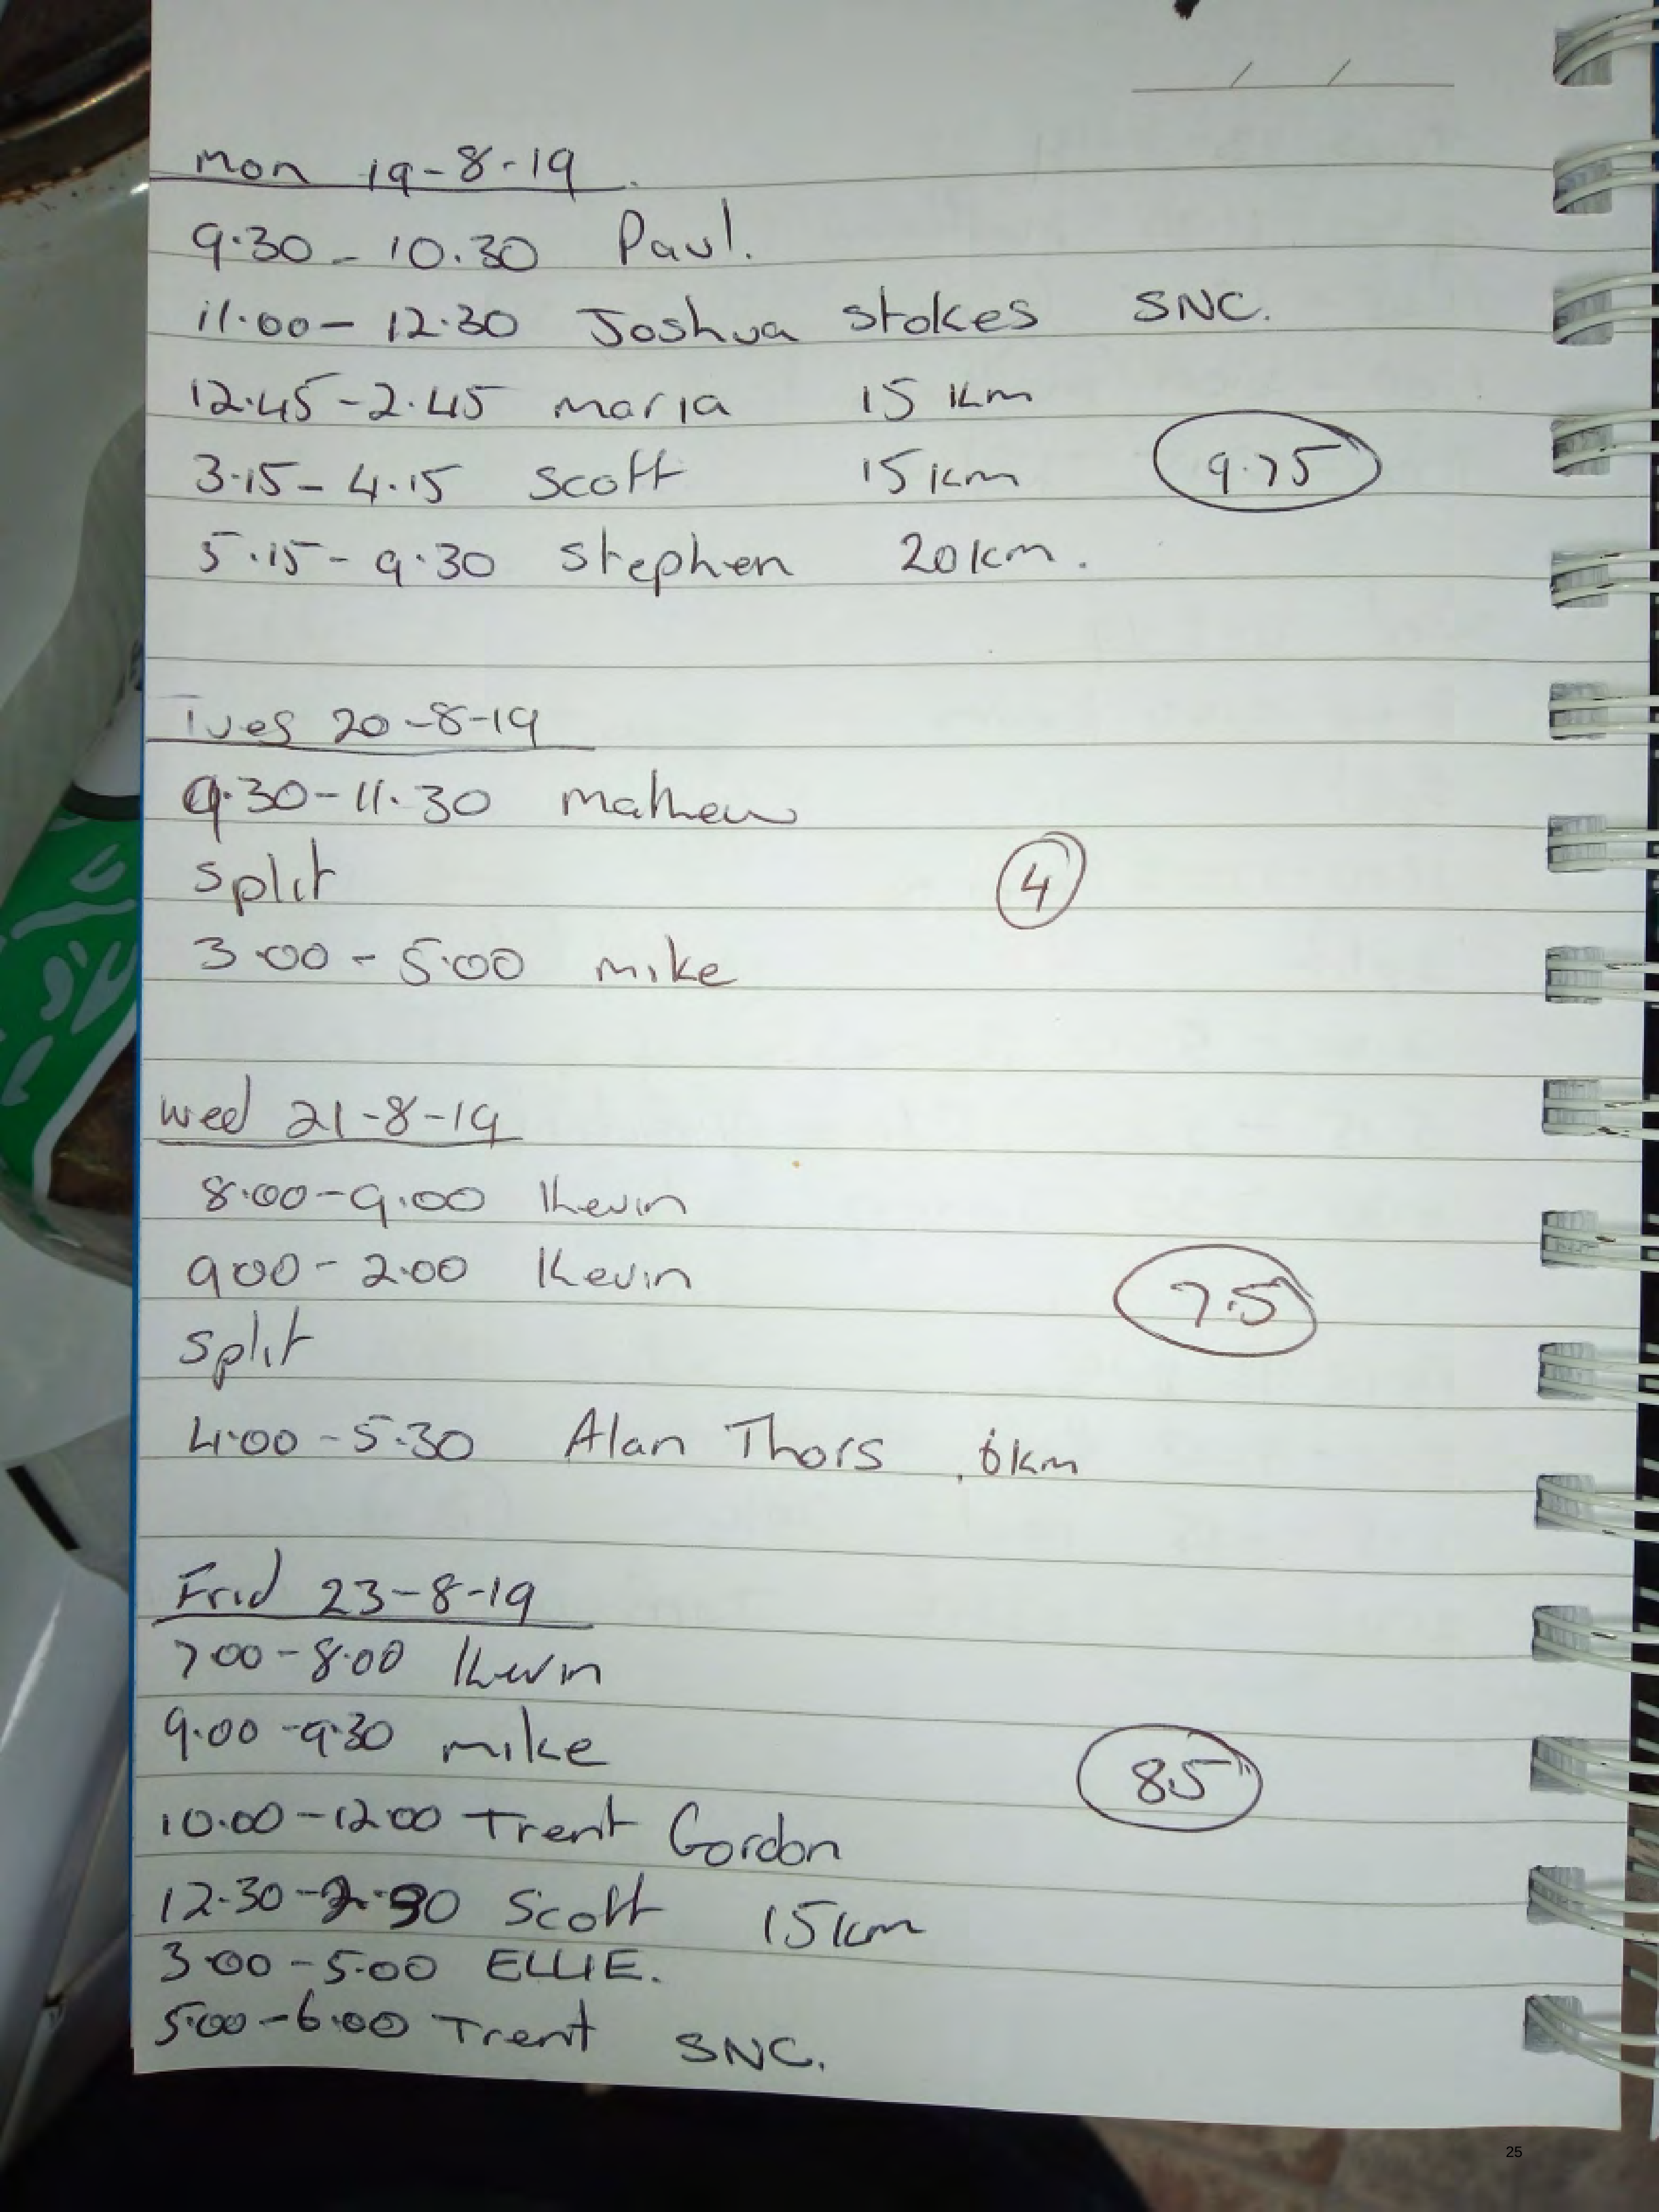 Mon 19-8-19.
9.30 - 10.30 Paul.
11.00 - 12.30 Joshua Stokes SNC.
12.45 - 2.45 maria 15 km
3.15 - 4.15 Scott 15 km
9.75
5.15 - 9.30 Stephen 20 km.
Tues 20-8-19
9.30 - 11.30 Mathew
Split
4
3.00 - 5.00 mike
Wed 21-8-19
8.00 - 9.00 Kevin
900 - 2.00 Kevin
7.5
Split
4.00 - 5.30 Alan Thors 6km
Frid 23-8-19
700 - 8.00 Kevin
9.00 - 9.30 mike
8.5
10.00 - 12.00 Trent Gordon
12.30 - Scott 15km
3.00 - 5.00 ELLIE.
5.00 - 6.00 Trent SNC.
25